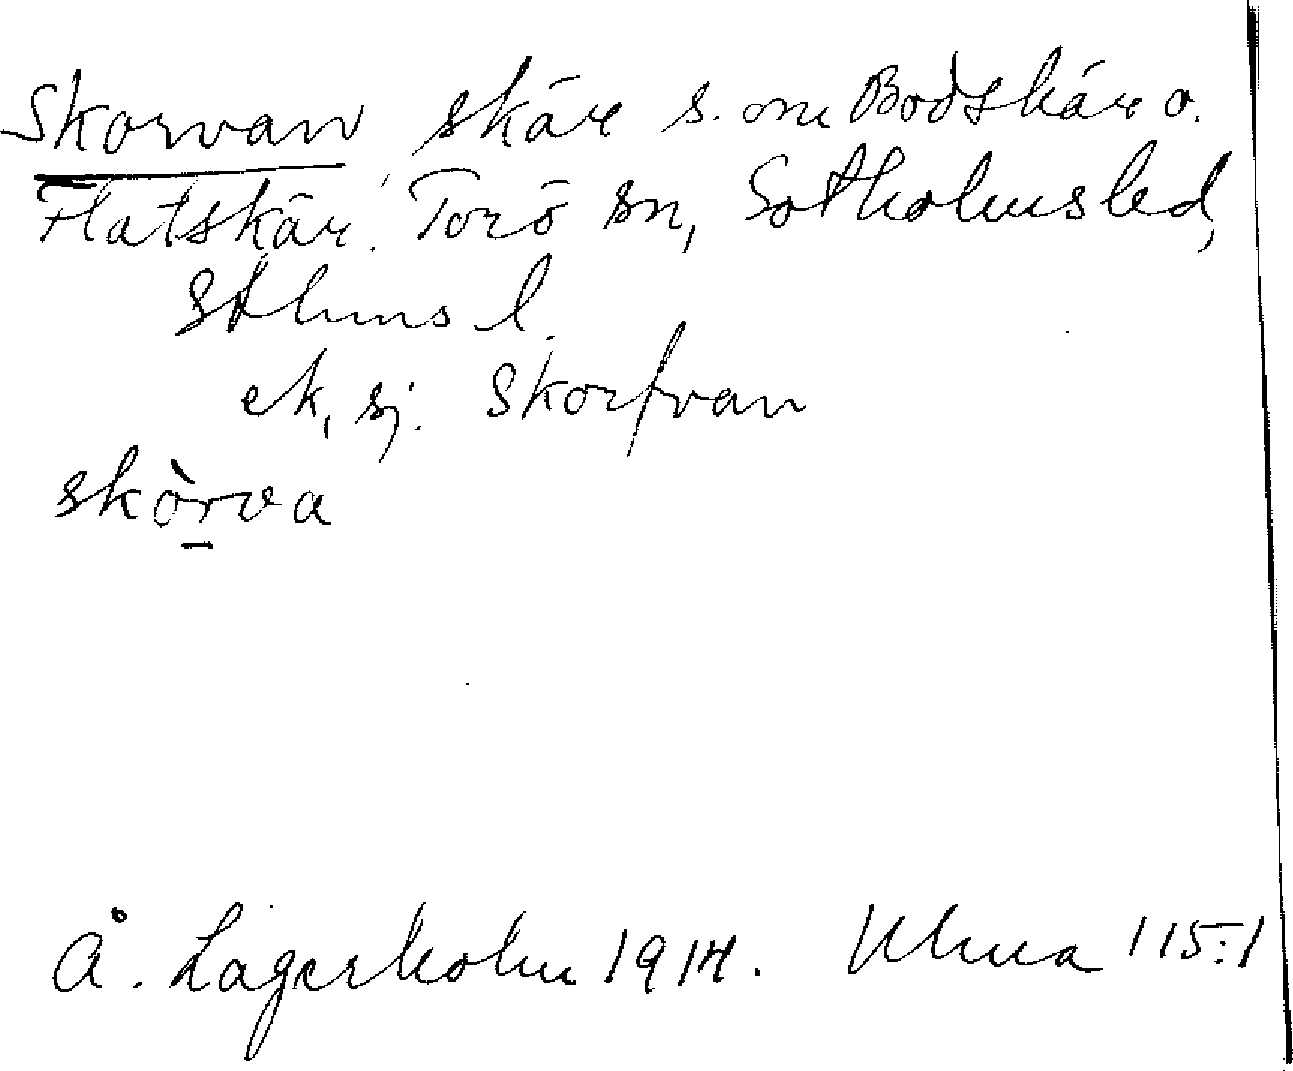 Skorvan skär s. om Bodskär o.
Flatskär. Torö sn, Sotholms led,
Sthlms l.
ek, sj. Skorfvan
skòrva
Å. Lagerholm 1914. Ulma 115:1